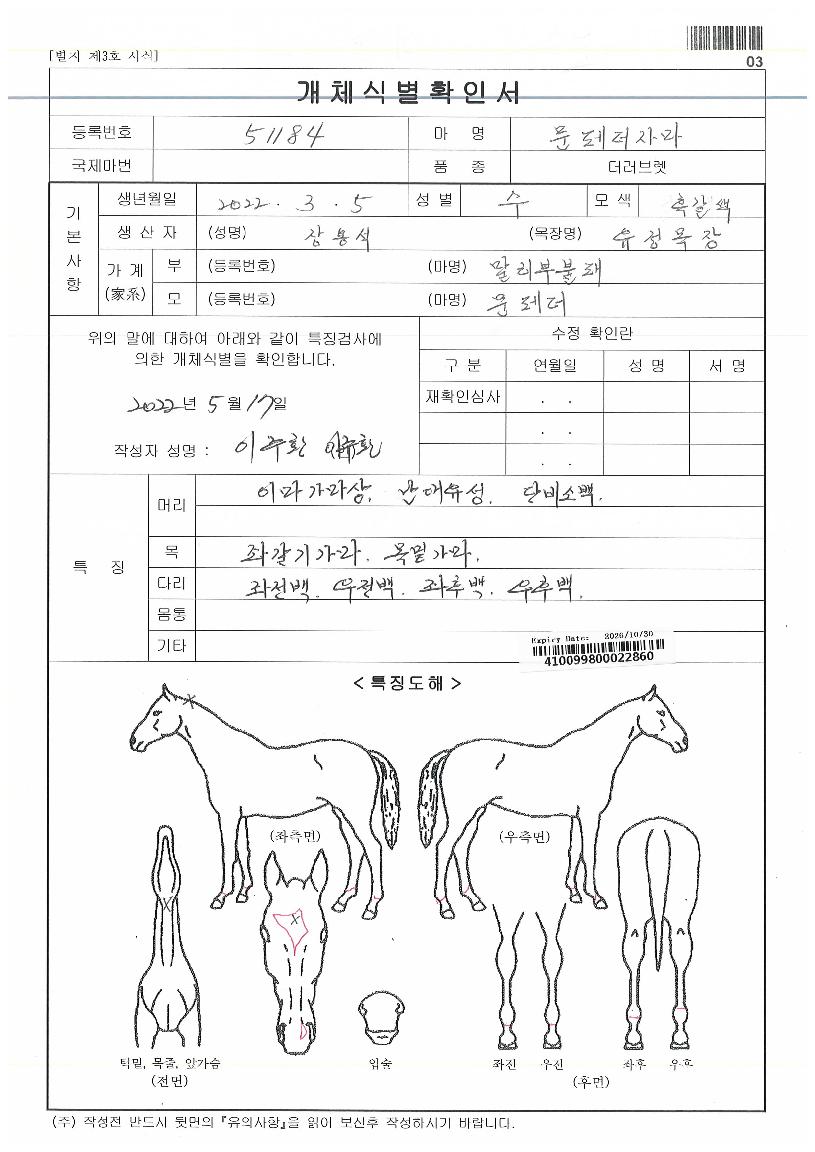 [별지 제3호 서식]
03
개체식별확인서
등록번호 51184 마 명 문레더자마
국제마번 품 종 더러브렛
기본사항
생년월일 2022 . 3 . 5 성 별 수 모 색 흑갈색
생 산 자 (성명) 용석 (목장명) 유정목장
가 계 (家系) 부 (등록번호) (마명) 말리부불패
모 (등록번호) (마명) 문레더
위의 말에 대하여 아래와 같이 특징검사에
의한 개체식별을 확인합니다.
2022년 5월 17일
작성자 성명 : 이주환
수정 확인란
구 분 연월일 성 명 서 명
재확인심사 . .
. .
. .
특 징
머리 이마가마상. 유성. 단비소백.
목 좌갈기가마. 목밑가마.
다리 좌전백. 우전백. 좌후백. 우후백.
몸통
기타
Expiry Date: 2026/10/30
410099800022860
< 특징도해 >
(좌측면) (우측면)
턱밑, 목줄, 앞가슴 입술 좌전 우전 좌후 우후
(전면) (후면)
(주) 작성전 반드시 뒷면의 『유의사항』을 읽어 보신후 작성하시기 바랍니다.